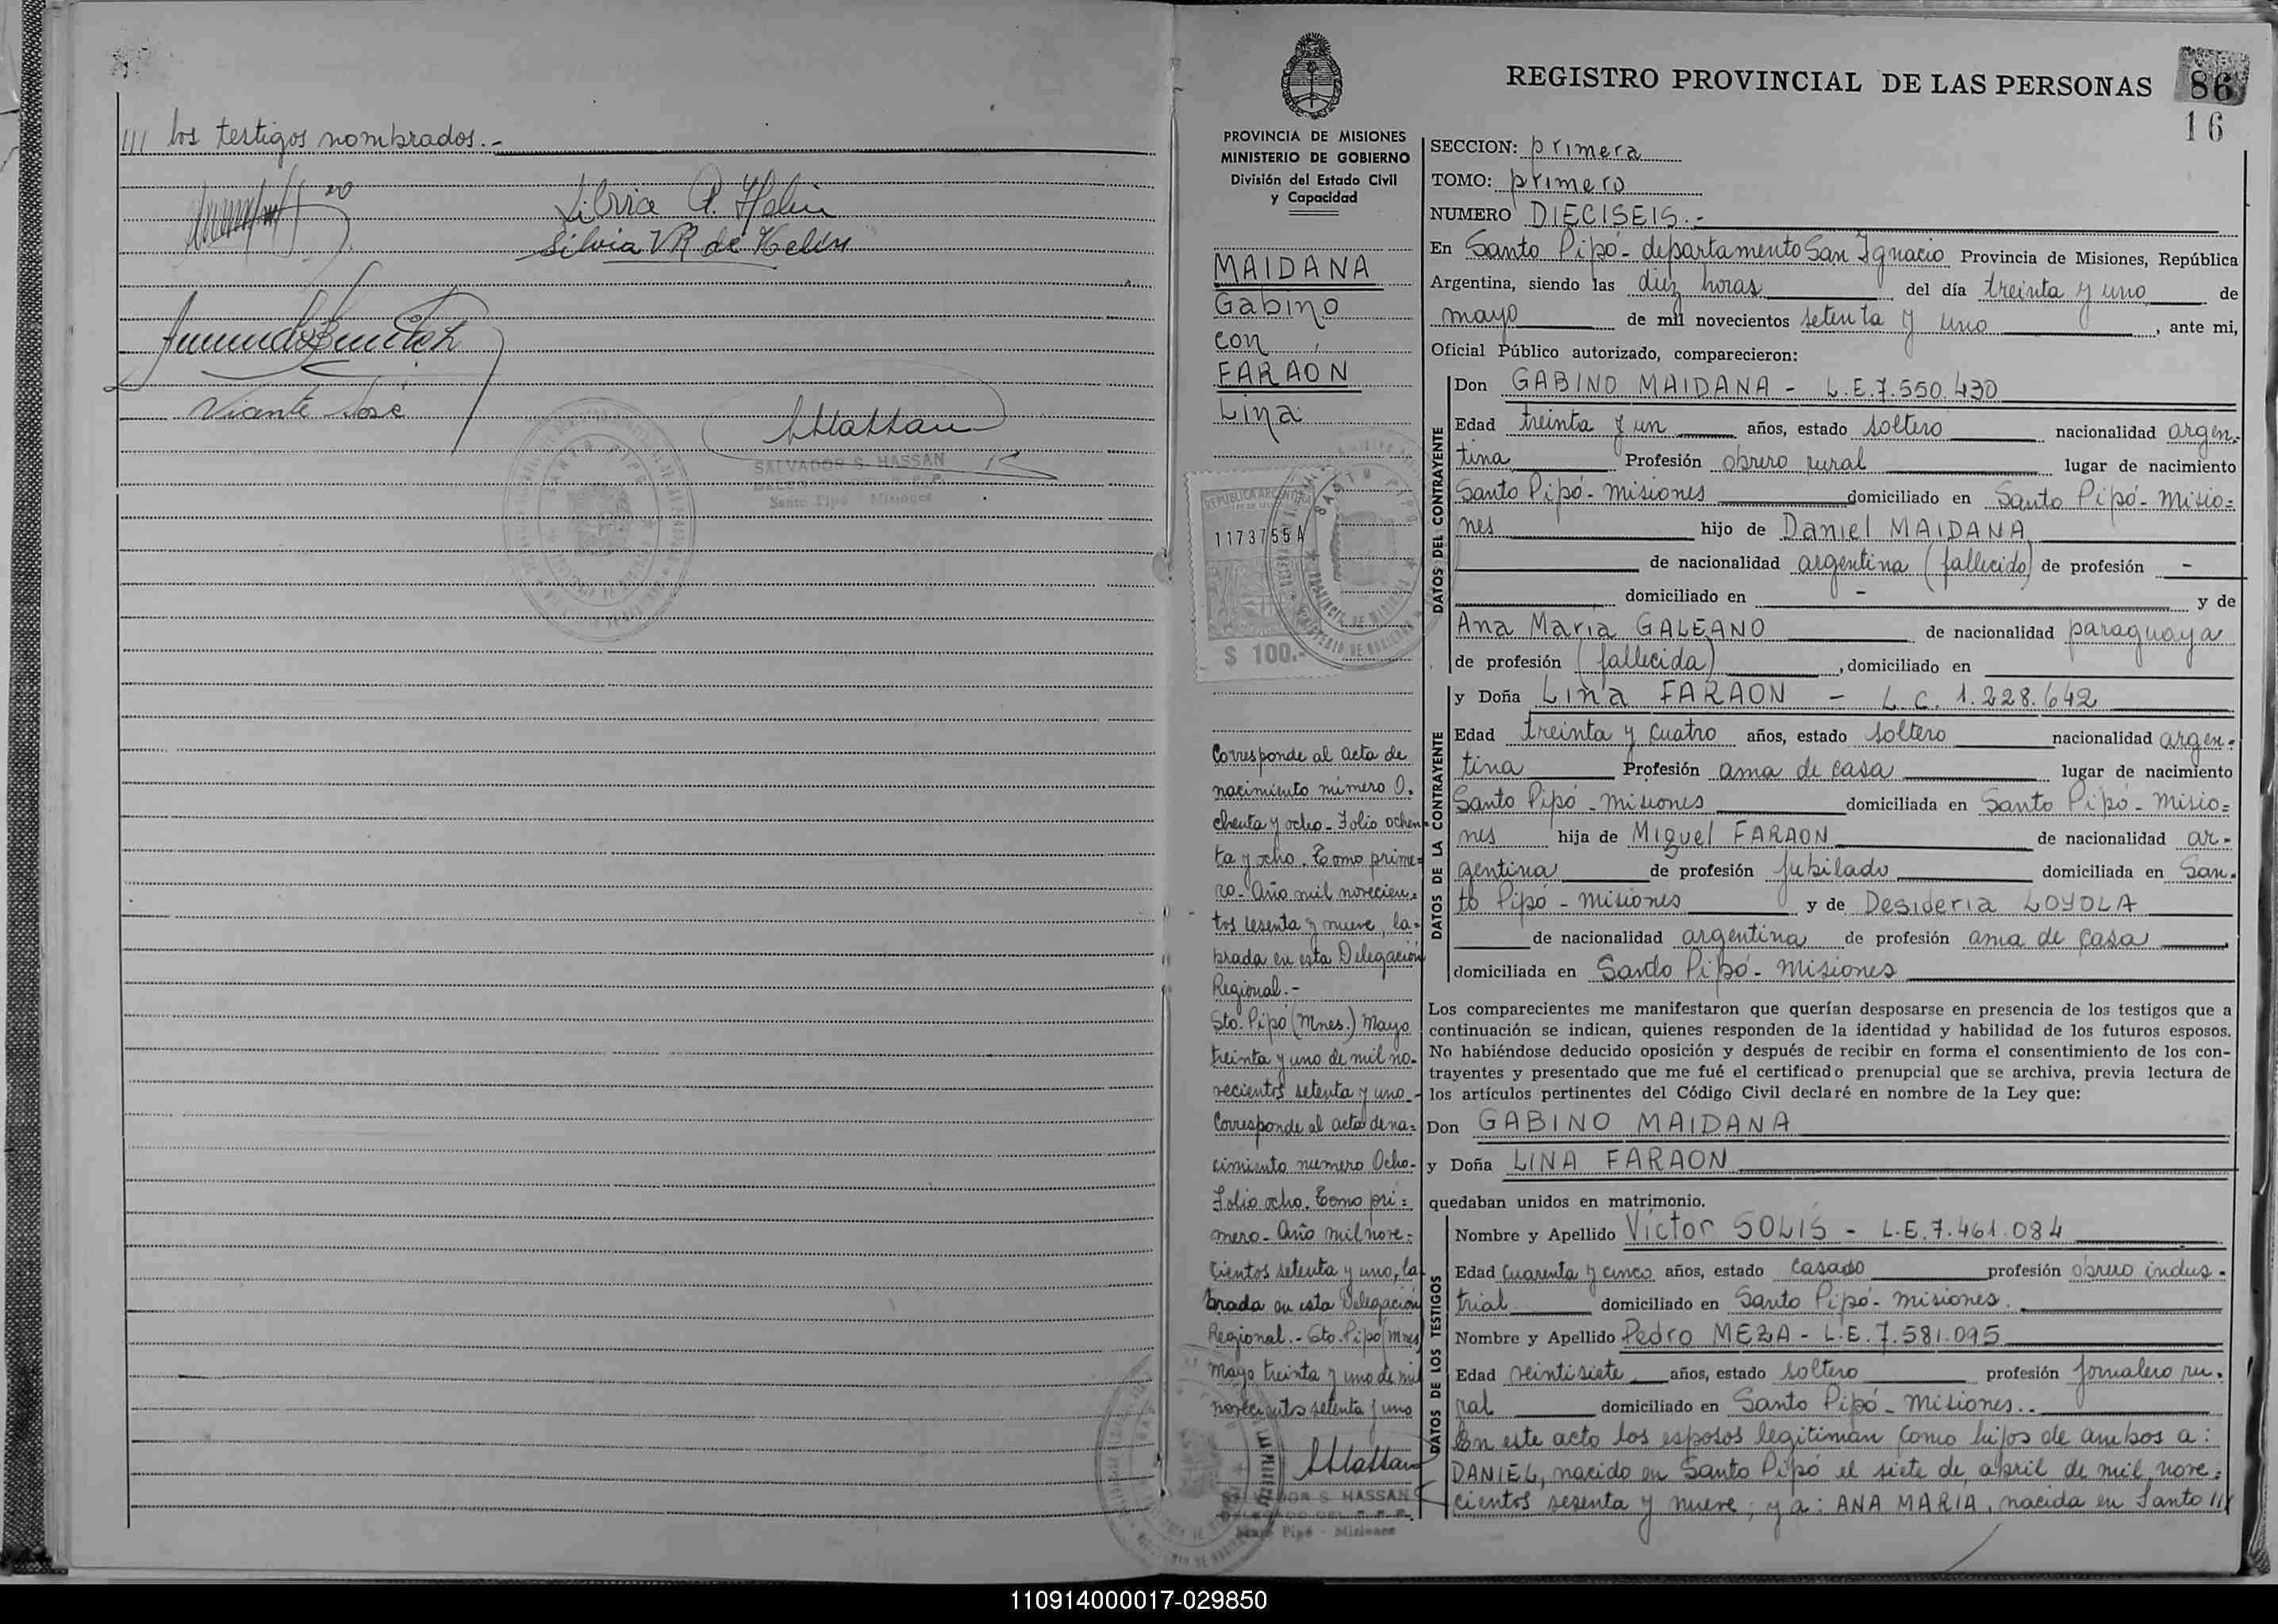 /// los testigos nombrados.-
Silvia VR de Helin
Viante José
SALVADOR S. HASSAN
DELEGADO DEL R. P. P.
Santo Pipó Misiones
REGISTRO PROVINCIAL DE LAS PERSONAS
86
16
PROVINCIA DE MISIONES
MINISTERIO DE GOBIERNO
División del Estado Civil
y Capacidad
MAIDANA
Gabino
con
FARAON
Lina
REPUBLICA ARGENTINA
1173755A
$ 100.-
Corresponde al acta de
nacimiento número O.
chenta y ocho - Folio ochen-
ta y ocho. Tomo prime=
ro - Año mil novecien=
tos sesenta y nueve, la=
brada en esta Delegación
Regional.-
Sto. Pipó (Mnes.) Mayo
treinta y uno de mil no-
vecientos setenta y uno -
Corresponde al acta de na=
cimiento numero Ocho-
Folio ocho. Tomo pri=
mero - Año mil nove=
cientos setenta y uno, la
brada en esta Delegación
Regional.- Sto. Pipó (Mnes)
Mayo treinta y uno de mil
novecientos setenta y uno
SALVADOR S. HASSAN
DELEGADO DEL R. P. P.
Santo Pipó - Misiones
SECCION: primera
TOMO: primero
NUMERO DIECISEIS.-
En Santo Pipó - departamento San Ignacio Provincia de Misiones, República
Argentina, siendo las diez horas del día treinta y uno de
mayo de mil novecientos setenta y uno, ante mi,
Oficial Público autorizado, comparecieron:
DATOS DEL CONTRAYENTE
Don GABINO MAIDANA - L.E.7.550.430
Edad treinta y un años, estado soltero nacionalidad argen-
tina Profesión obrero rural lugar de nacimiento
Santo Pipó - Misiones domiciliado en Santo Pipó - Misio=
nes hijo de Daniel MAIDANA
de nacionalidad argentina (fallecido) de profesión -
domiciliado en - y de
Ana María GALEANO de nacionalidad paraguaya
de profesión (fallecida), domiciliado en
DATOS DE LA CONTRAYENTE
y Doña Lina FARAON - L.C. 1.228.642
Edad treinta y cuatro años, estado soltero nacionalidad argen-
tina Profesión ama de casa lugar de nacimiento
Santo Pipó - Misiones domiciliada en Santo Pipó - Misio=
nes hija de Miguel FARAON de nacionalidad ar-
gentina de profesión jubilado domiciliada en San-
to Pipó - Misiones y de Desideria LOYOLA
de nacionalidad argentina de profesión ama de casa
domiciliada en Santo Pipó - Misiones
Los comparecientes me manifestaron que querían desposarse en presencia de los testigos que a
continuación se indican, quienes responden de la identidad y habilidad de los futuros esposos.
No habiéndose deducido oposición y después de recibir en forma el consentimiento de los con-
trayentes y presentado que me fué el certificado prenupcial que se archiva, previa lectura de
los artículos pertinentes del Código Civil declaré en nombre de la Ley que:
Don GABINO MAIDANA
y Doña LINA FARAON
quedaban unidos en matrimonio.
DATOS DE LOS TESTIGOS
Nombre y Apellido Víctor SOLIS - L.E.7.461.084
Edad cuarenta y cinco años, estado casado profesión obrero indus-
trial domiciliado en Santo Pipó - Misiones.
Nombre y Apellido Pedro MEZA - L.E.7.581.095
Edad veintisiete años, estado soltero profesión jornalero ru-
ral domiciliado en Santo Pipó - Misiones..
En este acto los esposos legitiman como hijos de ambos a:
DANIEL, nacido en Santo Pipó el siete de abril de mil nove=
cientos sesenta y nueve; y a: ANA MARIA, nacida en Santo ///
110914000017-029850